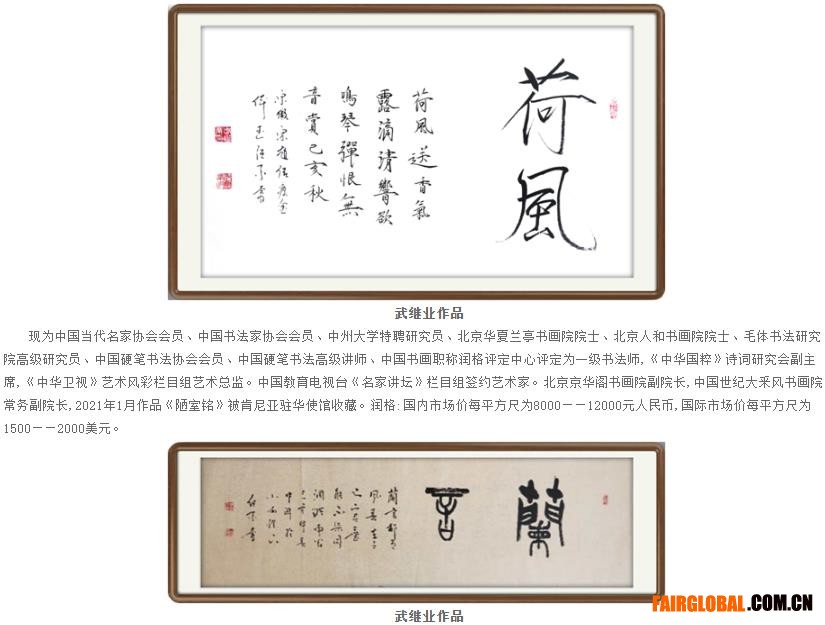 荷風
荷風送香氣
露滴清響欲
鳴琴彈恨無
音賞己亥秋
武继业作品
现为中国当代名家协会会员、中国书法家协会会员、中州大学特聘研究员、北京华夏兰亭书画院院士、北京人和书画院院士、毛体书法研究
院高级研究员、中国硬笔书法协会会员、中国硬笔书法高级讲师、中国书画职称润格评定中心评定为一级书法师,《中华国粹》诗词研究会副主
席,《中华卫视》艺术风彩栏目组艺术总监。中国教育电视台《名家讲坛》栏目组签约艺术家。北京京华阁书画院副院长,中国世纪大采风书画院
常务副院长,2021年1月作品《陋室铭》被肯尼亚驻华使馆收藏。润格:国内市场价每平方尺为8000——12000元人民币,国际市场价每平方尺为
1500——2000美元。
蘭言
武继业作品
FAIRGLOBAL.COM.CN